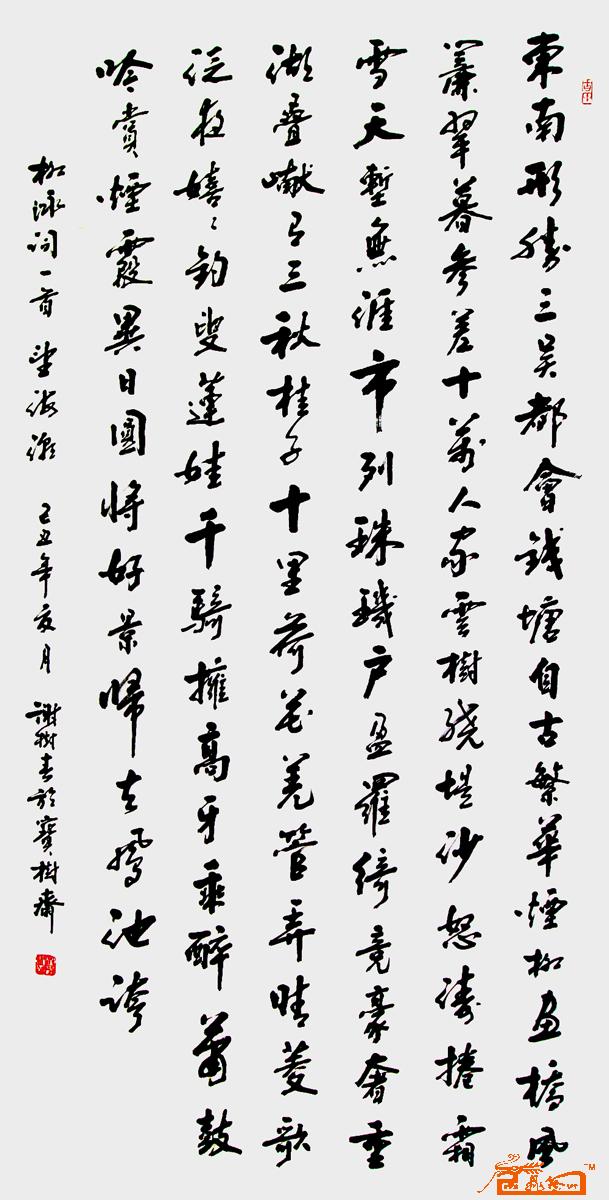 東南形勝三吳都會錢塘自古繁華煙柳畫橋風
簾翠暮參差十萬人家雲樹繞堤沙怒濤捲霜
雪天塹無涯市列珠璣户盈羅綺竟豪奢重
湖疊巘有三秋桂子十里荷花羌管弄晴菱歌
泛夜嬉々釣叟蓮娃千騎擁高牙乘醉簫鼓
吟賞煙霞異日圖將好景歸去鳳池誇
柳詠詞一首望海潮 己丑年亥月 謝樹春於寶樹齋